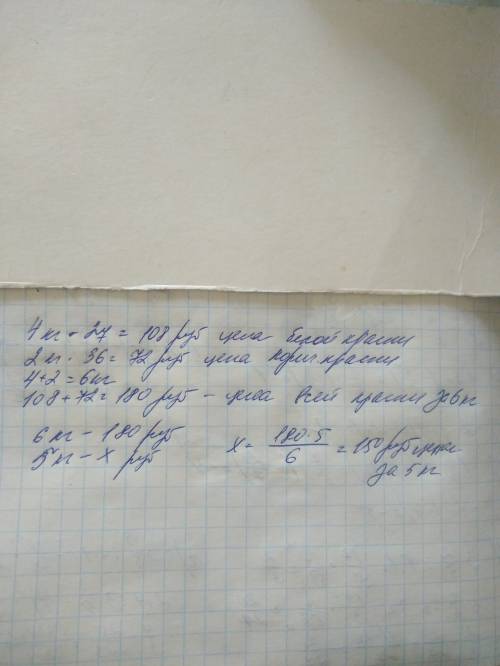 4 кг · 27 = 108 руб цена белой краски
2 кг · 36 = 72 руб цена корич краски
4+2=6кг
108+72=180 руб - цена всей краски за 6 кг
6 кг - 180 руб
5 кг - х руб
х = 180·5 / 6 = 150 руб цена
за 5 кг